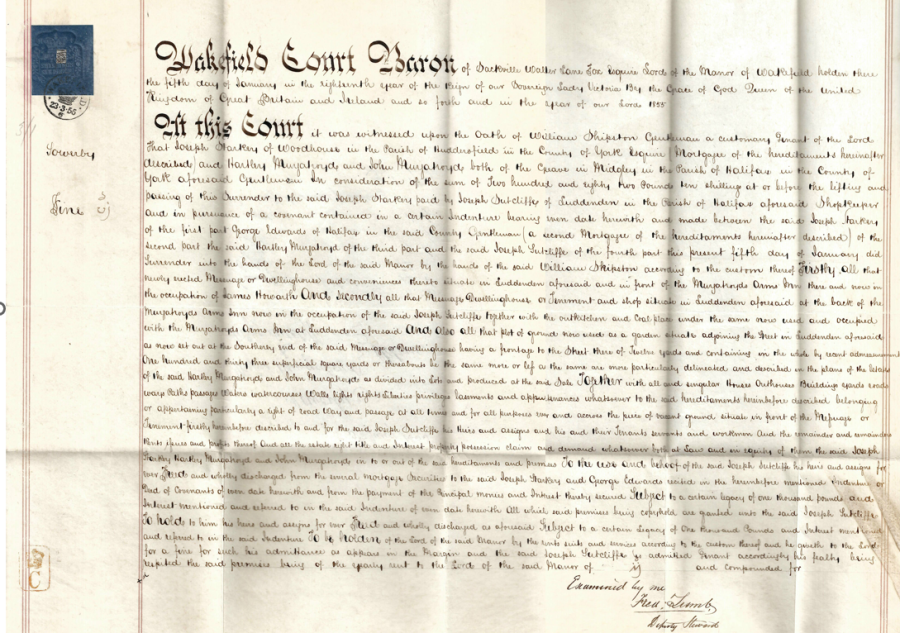 Wakefield Court Baron of Sackville Walter Lane Fox Esquire Lord of the Manor of Wakefield holden there
the fifth day of January in the eighteenth year of the Reign of our Sovereign Lady Victoria By the Grace of God Queen of the United
Kingdom of Great Britain and Ireland and so forth and in the year of our Lord 1855
23-3-55
At this Court it was witnessed upon the Oath of William Shipston Gentleman a customary Tenant of the Lord
Sowerby
That Joseph Starkey of Woodhouse in the Parish of Huddersfield in the County of York Esquire Mortgagee of the hereditaments hereinafter
described and Hartley Murgatroyd and John Murgatroyd both of the Greave in Midgley in the Parish of Halifax in the County of
York aforesaid Gentlemen In consideration of the sum of Two hundred and eighty two Pounds ten shillings at or before the lifting and
Fine
passing of this Surrender to the said Joseph Starkey paid by Joseph Sutcliffe of Luddenden in the Parish of Halifax aforesaid Shopkeeper
and in pursuance of a covenant contained in a certain Indenture bearing even date herewith and made between the said Joseph Starkey
of the first part George Edwards of Halifax in the said County Gentleman (a second Mortgagee of the hereditaments hereinafter described) of the
second part the said Hartley Murgatroyd of the third part and the said Joseph Sutcliffe of the fourth part this present fifth day of January did
Surrender into the hands of the Lord of the said Manor by the hands of the said William Shipston according to the custom thereof Firstly all that
newly erected Messuage or Dwellinghouse and conveniences thereto situate in Luddenden aforesaid and in front of the Murgatroyds Arms Inn there and now in
the occupation of James Howarth And secondly all that Messuage Dwellinghouse or Tenement and shop situate in Luddenden aforesaid at the back of the
Murgatroyds Arms Inn now in the occupation of the said Joseph Sutcliffe together with the outkitchen and Coal place under the same now used and occupied
with the Murgatroyds Arms Inn at Luddenden aforesaid And also all that Plot of ground now used as a garden situate adjoining the Street in Luddenden aforesaid
as now set out at the Southerly end of the said Messuage or Dwellinghouse having a frontage to the Street there of Twelve yards and containing in the whole by recent admeasurement
One hundred and thirty three superficial square yards or thereabouts be the same more or less as the same are more particularly delineated and described in the plans of the Estates
of the said Hartley Murgatroyd and John Murgatroyd as divided into Lots and produced at the said Sale Together with all and singular Houses Outhouses Buildings yards roads
ways Paths passages Waters watercourses Walls lights rights Liberties privileges easements and appurtenances whatsoever to the said hereditaments hereinbefore described belonging
or appertaining particularly a right of road Way and passage at all times and for all purposes over and across the piece of vacant ground situate in front of the Messuage or
Tenement firstly hereinbefore described to and for the said Joseph Sutcliffe his Heirs and Assigns and his and their Tenants servants and workmen And the remainder and remainders
Rents issues and profits thereof And all the estate right title and Interest property possession claim and demand whatsoever both at Law and in equity of them the said Joseph
Starkey Hartley Murgatroyd and John Murgatroyd in to or out of the said hereditaments and premises To the use and behoof of the said Joseph Sutcliffe his heirs and assigns for
ever Freed and wholly discharged from the several mortgage Securities to the said Joseph Starkey and George Edwards recited in the hereinbefore mentioned Indenture or
Deed of Covenants of even date herewith and from the payment of the Principal monies and Interest thereby secured Subject to a certain legacy of one thousand pounds and
Interest mentioned and referred to in the said Indenture of even date herewith All which said premises being copyhold are granted unto the said Joseph Sutcliffe
To hold to him his heirs and assigns for ever Freed and wholly discharged as aforesaid Subject to a certain Legacy of One thousand Pounds and Interest mentioned
and referred to in the said Indenture To be holden of the Lord of the said Manor by the rents suits and services according to the custom thereof and he giveth to the Lord
for a fine for such his admittance as appears in the Margin and the said Joseph Sutcliffe is admitted Tenant accordingly his fealty being
respited the said premises being of the yearly rent to the Lord of the said Manor of and compounded for
Examined by me
Fred. Lumb
Deputy Steward
C